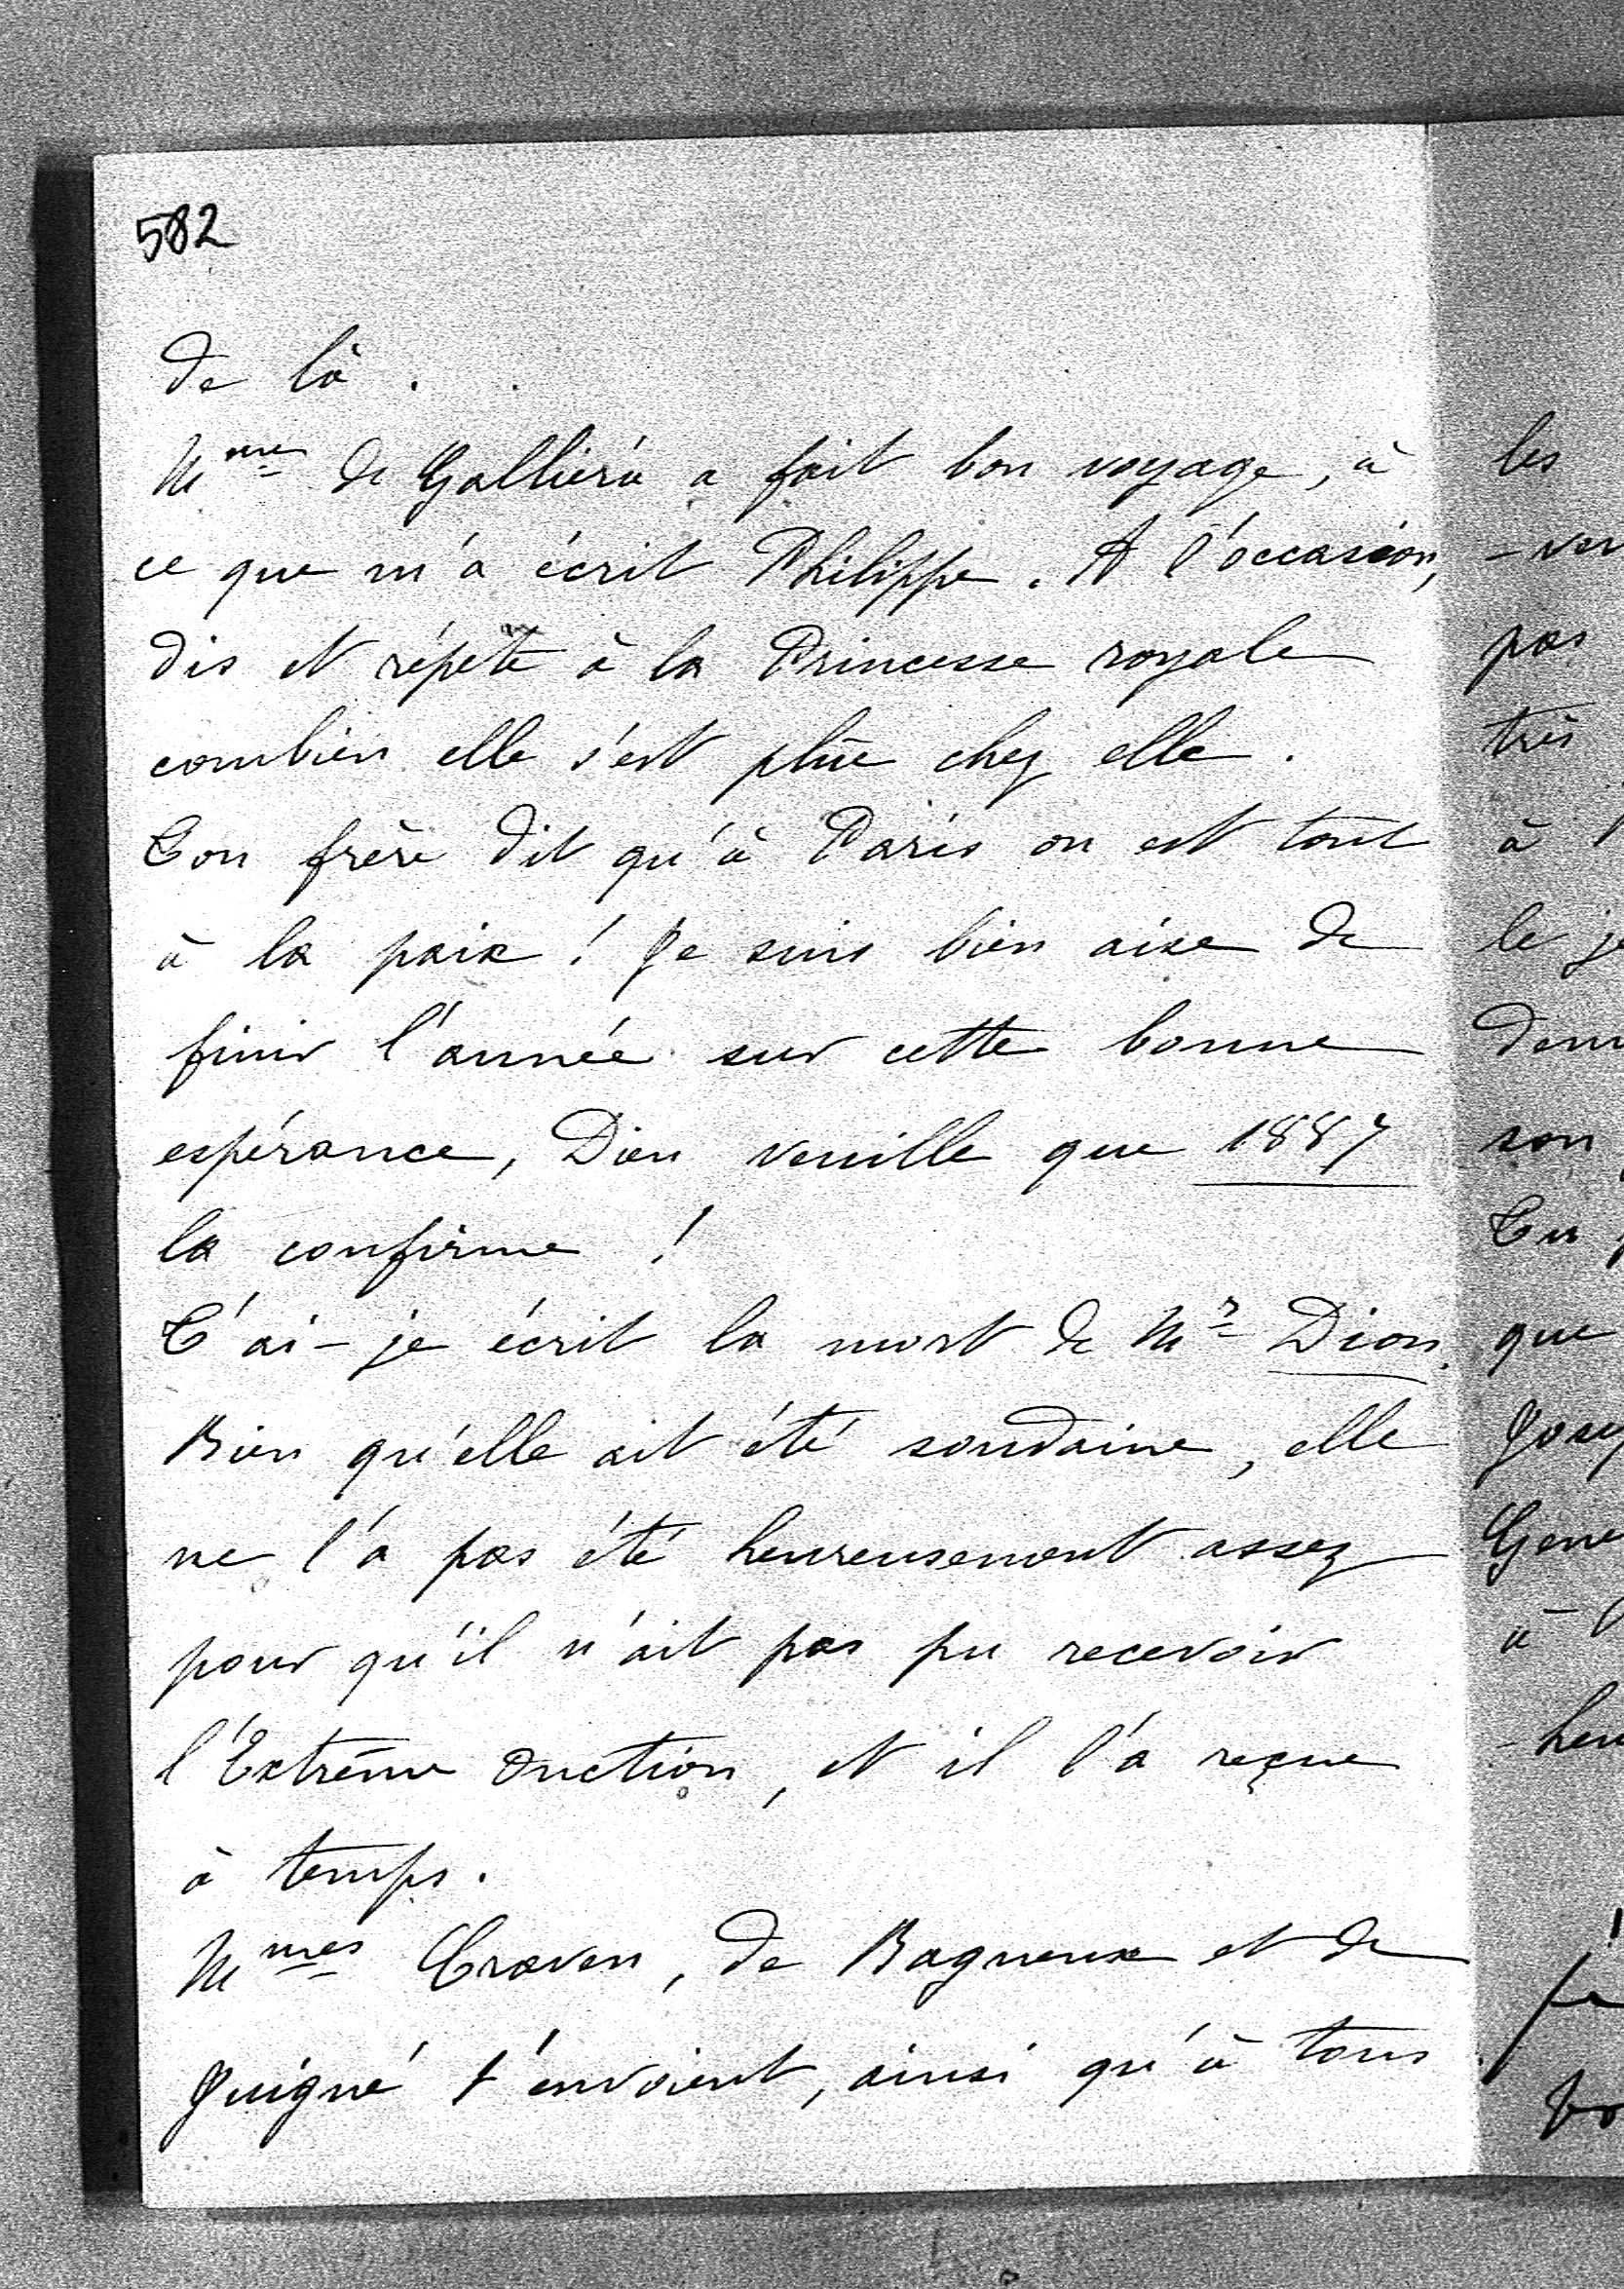 582
de là .
Mme de Galliéra a fait bon voyage, à
ce que m'a écrit Philippe. A l'occasion,
dis et répète à la Princesse royale
combien elle s'est plûe chez elle.
Ton frère dit qu'à Paris on est tout
à la paix ! Je suis bien aise de
finir l'année sur cette bonne
espérance, Dieu veuille que 1887
la confirme !
T'ai-je écrit la mort de Mr Dion.
Bien qu'elle ait été soudaine, elle
ne l'a pas été heureusement assez
pour qu'il n'ait pas pu recevoir
l'Extrême Onction, et il l'a reçue
à temps.
Mmes Craven, de Bagneux et de
Guigné t'envoient, ainsi qu'à tous
les
-ver
pas
très
à
le je
son
Tu
que
à
-heu